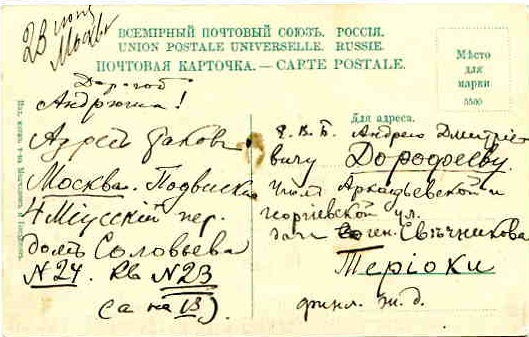 23 июня
Москва
ВСЕМІРНЫЙ ПОЧТОВЫЙ СОЮЗЪ. РОССІЯ.
UNION POSTALE UNIVERSELLE. RUSSIE.
ПОЧТОВАЯ КАРТОЧКА. — CARTE POSTALE.
Мѣсто
для
марки
5500
Дорогой
Андрюша!
Адресъ таковъ
Москва. Подвиски
4 Міусскій пер.
домъ Соловьева
N 24. Кв N 23
(а не 13).
Для адреса.
Е. В. Б. Андрею Дмитріе-
вичу Дорофееву
Уголъ Аркадьевской и
георгіевской ул.
дача ген. Свѣчникова
Теріоки
финл. ж. д.